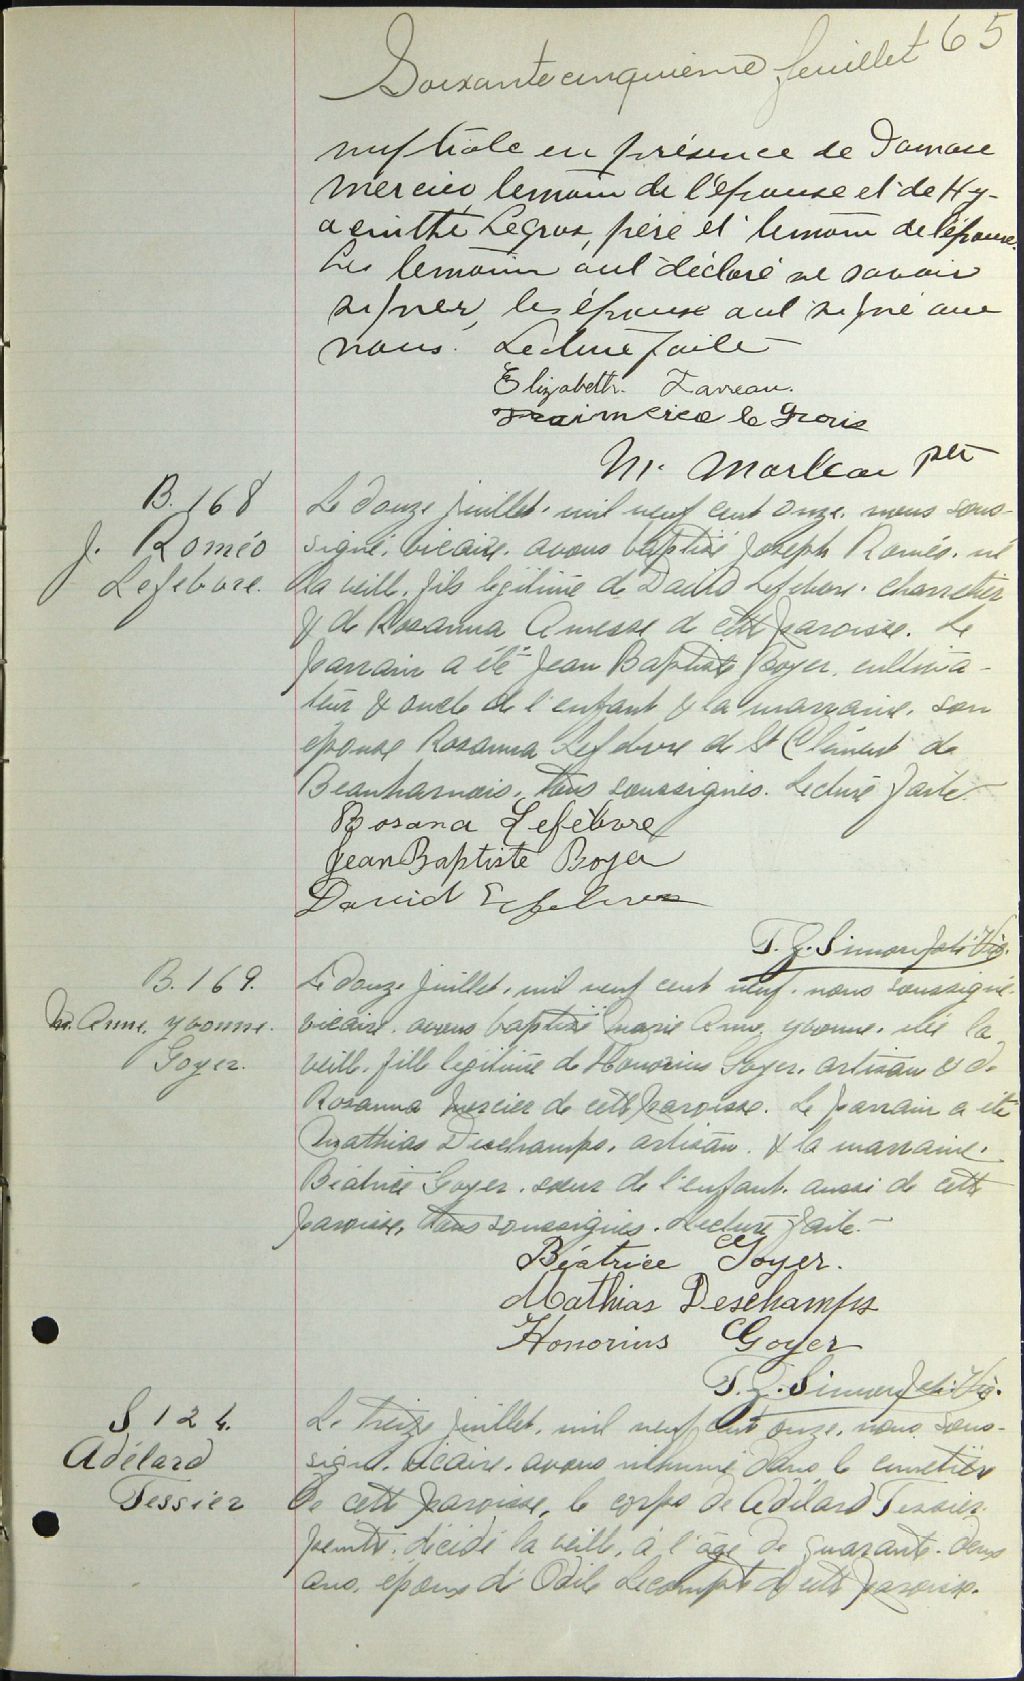 65
Soixante cinquième feuillet
nuptiale en présence de Damase
Mercier, temoin de l'épouse et de Hy-
acinthe Legros, père et temoin de l'époux.
Les temoins ont déclaré ne savoir
signer, les époux ont signé avec
nous. Lecture faite
Elizabeth
le Grois
M. pter
B. 168
J. Roméo
Lefebvre.
Le douze juillet, mil neuf cent onze, nous sous-
signé, vicaire, avons baptisé Joseph Roméo, né
la veille, fils légitime de David Lefebvre, charretier
& de Rosanna de cette paroisse. Le
parrain a été Jean Baptiste Boyer, cultiva-
teur & oncle de l'enfant & la marraine, son
épouse Rosanna Lefebvre de St Clément de
Beauharnois, tous soussignés. Lecture faite.
Rosana Lefebvre
Jean Baptiste Boyer
David Lefebvre
B. 169.
M. Anne, Yvonne.
Goyer.
Le douze juillet, mil neuf cent neuf, nous soussigné,
vicaire, avons baptisé Marie Anne, Yvonne, née la
veille, fille légitime de Honorius Goyer, artisan & de
Rosanna Mercier de cette paroisse. Le parrain a été
Mathias Deschamps, artisan, & la marraine,
Béatrice Goyer, sœur de l'enfant, aussi de cette
paroisse, tous soussignés. Lecture faite.
Béatrice Goyer.
Mathias Deschamps
Honorius Goyer
S 124.
Adélard
Tessier
Le treize juillet, mil neuf cent onze, nous, sous-
signé, vicaire, avons inhumé dans le cimetière
de cette paroisse, le corps de Adélard Tessier,
peintre, décédé la veille, à l'âge de quarante-deux
ans, époux d'Odile Lecompte de cette paroisse.